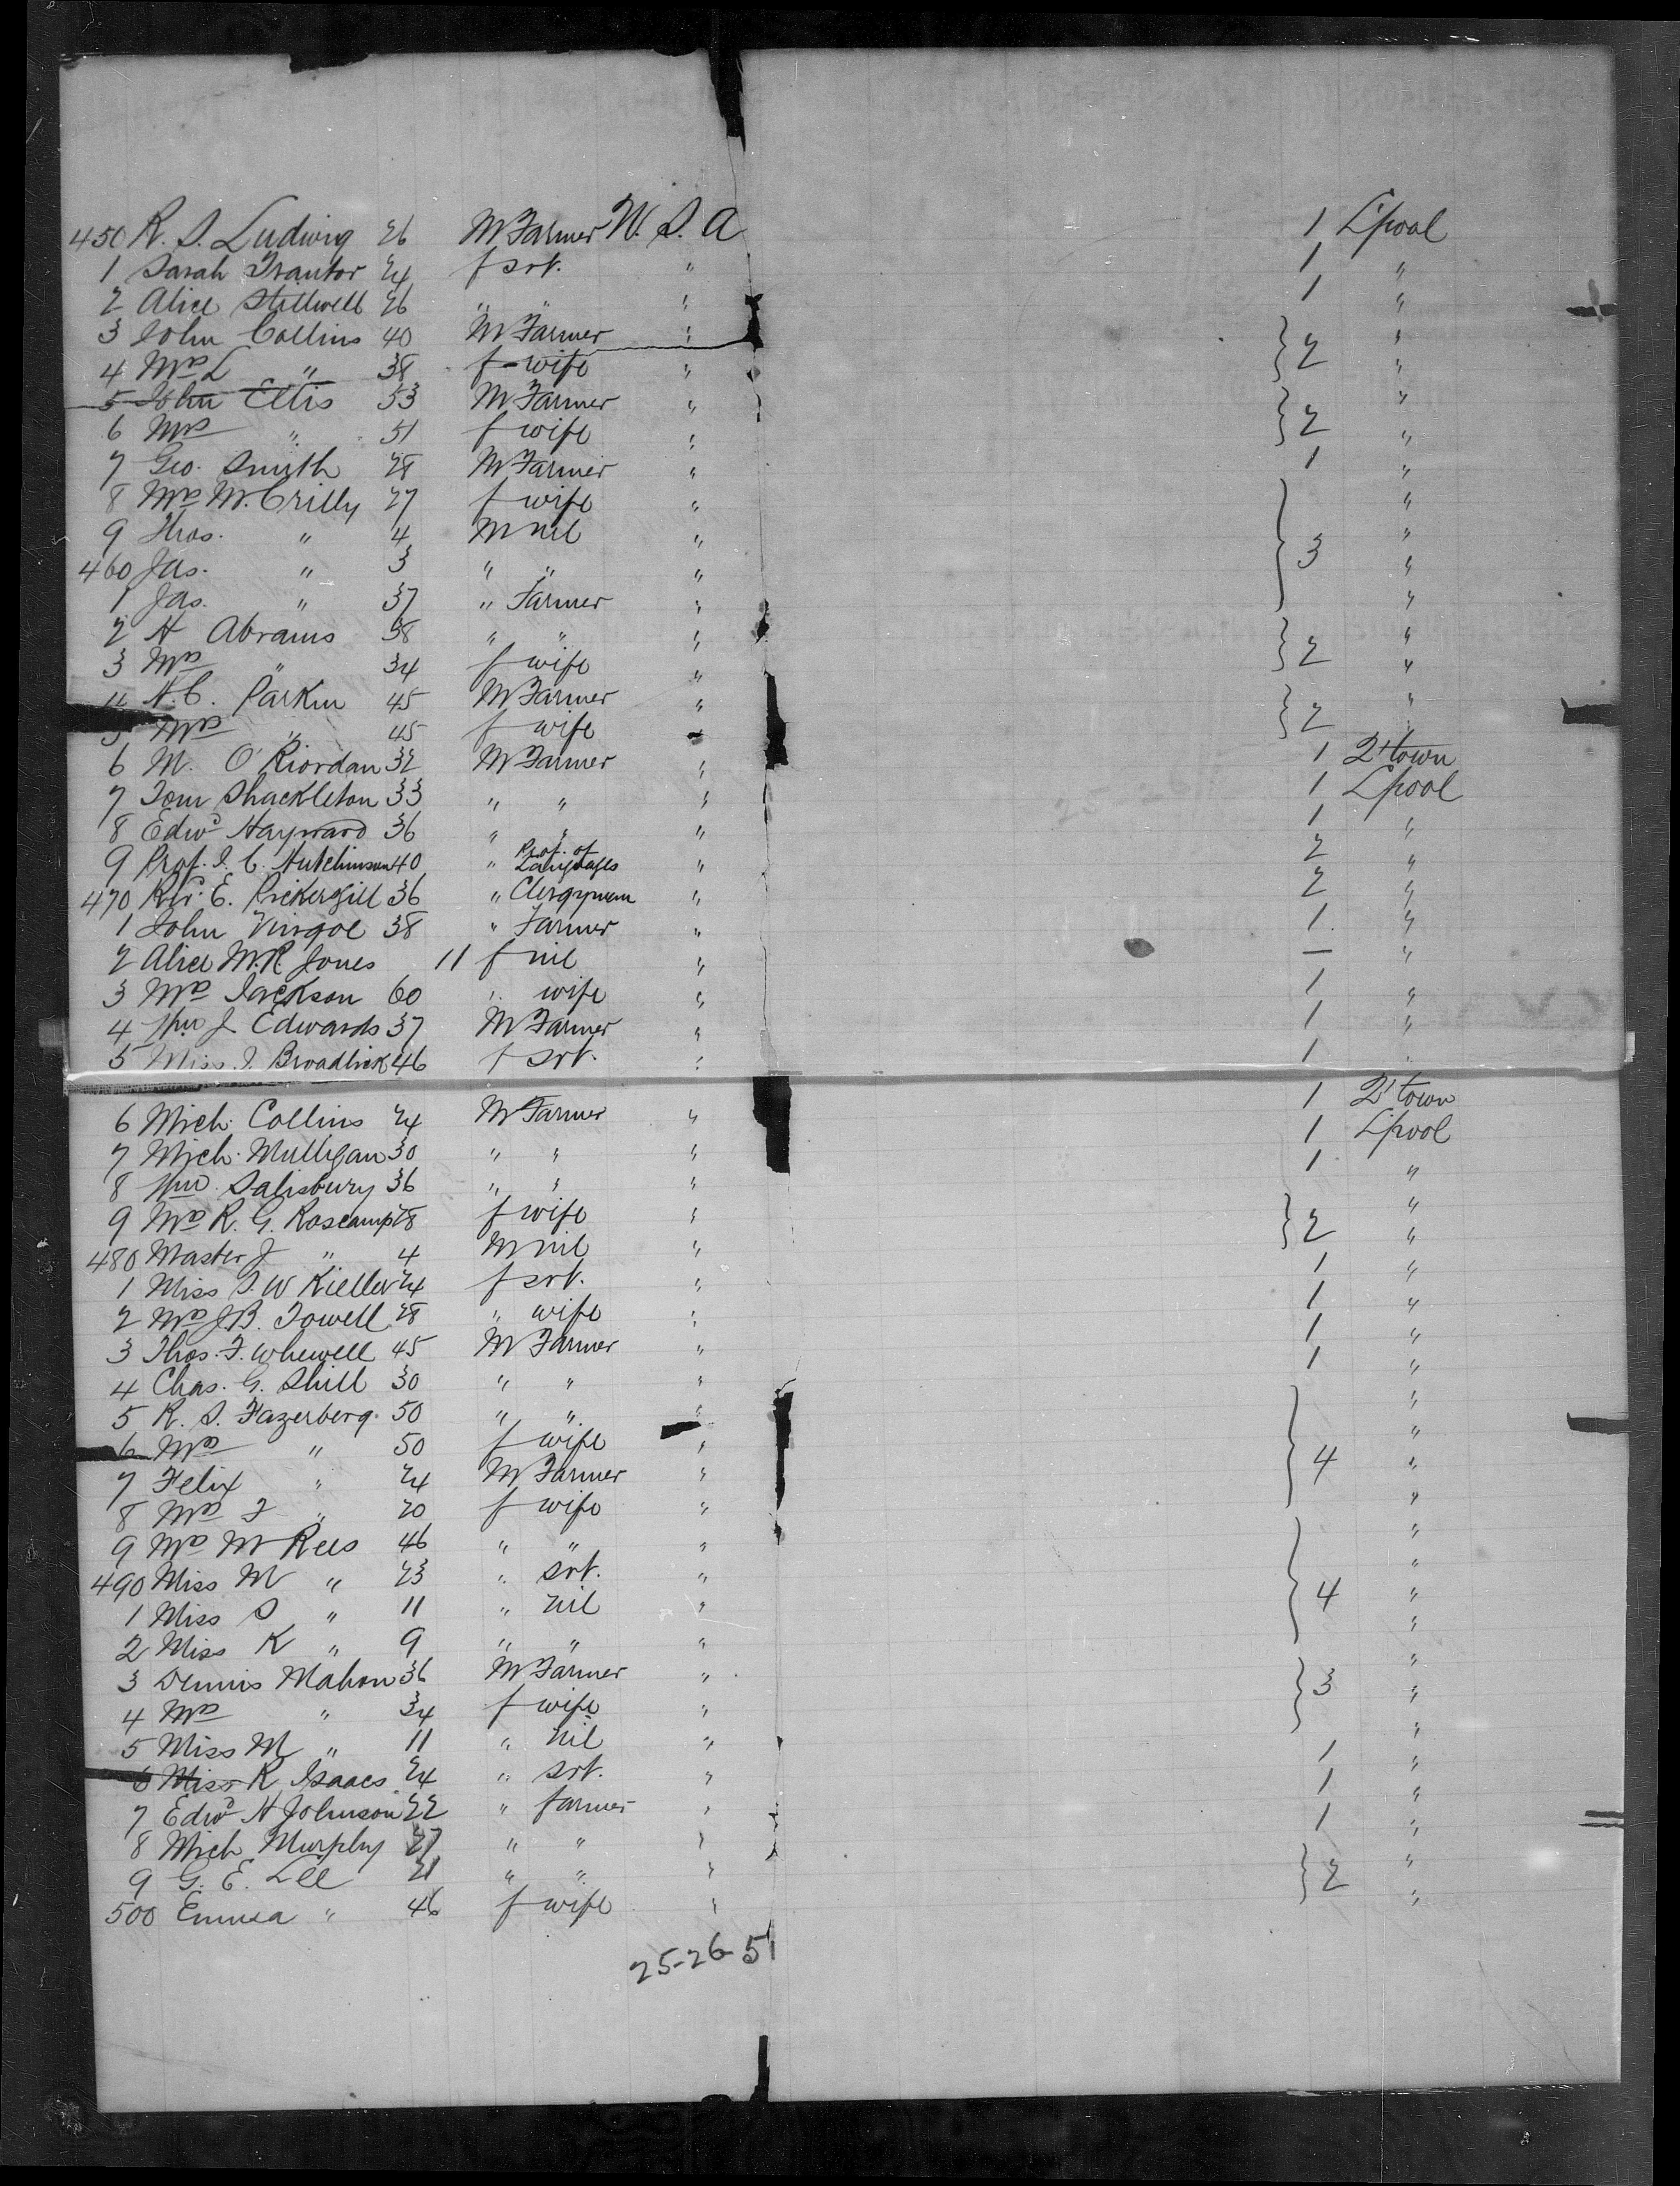 450 R. S. Ludwig 26 M Farmer U. S. A 1 L'pool
1 Sarah Trantor 24 f srt. " 1 "
2 Alice Stillwell 26 " " " 1 "
3 John Collins 40 M Farmer " } 2 "
4 Mrs L " 38 f wife " "
5 John Ellis 53 M Farmer " } 2 "
6 Mrs " 51 f wife " "
7 Geo. Smith 28 M Farmer " 1 "
8 Mrs M. Crilly 27 f wife " } 3 "
9 Thos. " 4 M nil " "
460 Jas. " 3 " " " "
1 Jas. " 37 " Farmer " "
2 H Abrams 38 " " " } 2 "
3 Mrs " 34 f wife " "
4 H. C. Parkin 45 M Farmer " } 2 "
5 Mrs " 45 f wife " "
6 M. O'Riordan 32 M Farmer " 1 Q'town
7 Tom Shackleton 33 " " " 1 L'pool
8 Edwd Hayward 36 " " " 1 "
9 Prof. I. C. Hutchinson 40 " Prof. of Languages " 2 "
470 Rev. E. Pickersgill 36 " Clergyman " 2 "
1 John Virgoe 38 " Farmer " 1 "
2 Alice M. R. Jones 11 f nil " — "
3 Mrs Jackson 60 " wife " 1 "
4 Wm J Edwards 37 M Farmer " 1 "
5 Miss I. Broadbick 46 f srt. " 1 "
6 Mich. Collins 24 M Farmer " 1 Q'town
7 Mich. Mulligan 30 " " " 1 L'pool
8 Wm. Salisbury 36 " " " 1 "
9 Mrs R. G. Roscamp 28 f wife " } 2 "
480 Master J " 4 M nil " "
1 Miss S. W Kieller 24 f srt. " 1 "
2 Mrs J. B. Towell 28 " wife " 1 "
3 Thos. F. Whewell 45 M Farmer " 1 "
4 Chas. G. Shill 30 " " " 1 "
5 R. S. Fazerberg 50 " " " } 4 "
6 Mrs " 50 f wife " "
7 Felix " 24 M Farmer " "
8 Mrs F " 20 f wife " "
9 Mrs M Rees 46 " " " } 4 "
490 Miss M " 23 " srt. " "
1 Miss S " 11 " nil " "
2 Miss K " 9 " " " "
3 Dennis Mahon 36 M Farmer " } 3 "
4 Mrs " 34 f wife " "
5 Miss M " 11 " nil " "
6 Miss R Isaacs 24 " srt. " 1 "
7 Edwd H Johnson 22 " farmer " 1 "
8 Mich Murphy 27 " " " 1 "
9 G. E. Lee 21 " " " } 2 "
500 Emma " 46 f wife " "
25-26 51